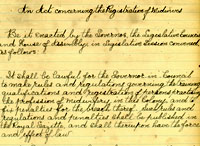 An Act concerning the Registration of Midwives
Be it enacted by the Governor, the Legislative Council
and House of Assembly, in Legislative Session convened,
as follows:
It shall be lawful for the Governor in Council
to make rules and regulations governing the training
qualifications and registration of persons practising
the profession of midwifery in this Colony and to
fix penalties for the breach thereof. Such rules and
regulations and penalties shall be published in
the Royal Gazette, and shall thereupon have the force
and effect of law